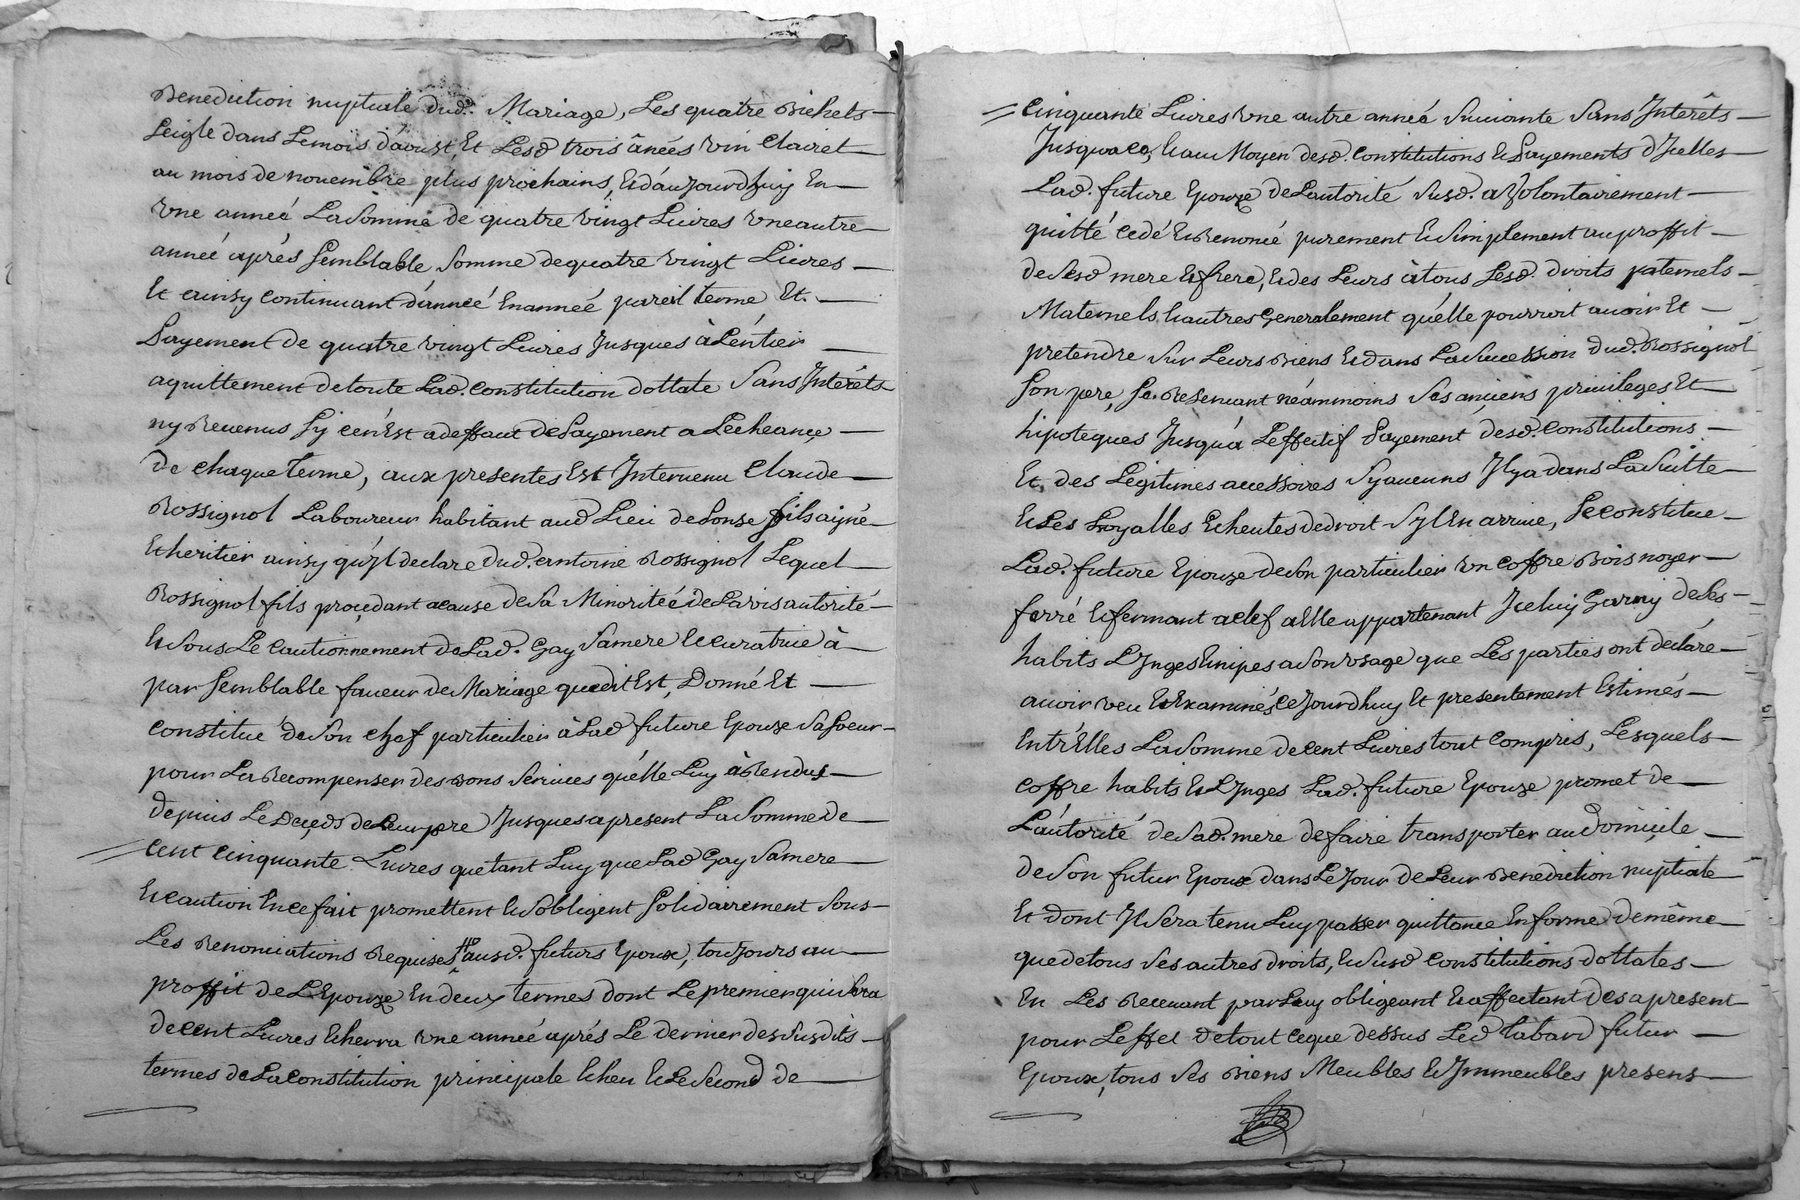 Benediction nuptiale dud. Mariage, Les quatre Bichets
Seigle dans Le mois d'aoust, Et Lesd trois ânées vin Clairet
au mois de novembre plus prochains, Et d'aujourdhuy En
une année La Somme de quatre vingt Livres une autre
année aprés Semblable Somme de quatre vingt Livres
Et ainsy continuant d'année En année pareil terme Et
Payement de quatre vingt Livres Jusques à L'entier
aquittement de toute Lad. Constitution dottale Sans Interêts
ny Revenus Sy cen'Est a deffaut de Payement a Lecheance
de chaque terme, aux presentes Est Intervenu Claude
Rossignol Laboureur habitant aud Lieu de Fils aîné
Et heritier ainsy qu'Jl declare dud. antoine Rossignol Lequel
Rossignol fils procedant a cause de Sa Minorité de L'avis autorité
Et Sous Le Cautionnement de Lad. Gay Sa mere Et curatrice à
par Semblable faveur de Mariage que dit Est, Donné Et
Constitué de Son chef particulier à Lad future Epouze Sa Soeur
pour La Recompenser des Bons Services qu'elle Luy à Rendus
depuis Le Deceds de Leur pere Jusques a present La Somme de
cent cinquante Livres que tant Luy que Lad Gay Sa mere
Et caution En ce fait promettent Et S'obligent Solidairement Sous
Les Renonciations Requises ausd. futurs Epoux, toujours au
proffit de L'Epouze En deux termes dont Le premier qui Sera
de cent Livres Echerra une année aprés Le dernier des Susdits
termes de La Constitution principale Echeu Et Le Second de
Cinquante Livres une autre année Suivante Sans Interêts
Jusqua ce, Et au Moyen desd. Constitutions Et Payements d'Jcelles
Lad. future Epouze de L'autorité Susd. a Volontairement
quitté cedé Et Renoncé purement Et Simplement au proffit
de Sesd mere Et frere, Et des Leurs à tous Lesd. droits paternels
Maternels Et autres Generalement qu'elle pourroit avoir Et
pretendre Sur Leurs Biens Et dans La Succession dud. Rossignol
Son pere, Se Reservant néammoins Ses anciens privileges Et
hipoteques Jusqu'a Leffectif Payement desd. Constitutions
Et des Légitimes accessoires Sy aucuns Jl y a dans La Suitte
Et Les Loyalles Echeutes de droit S'yl En arrive, Se constitue
Lad. future Epouze de Son particulier un coffre Bois noyer
ferré Et fermant a clef a Elle appartenant Jceluy Garny de Ses
habits L'Jnges Et nipes a Son usage que Les parties ont declaré
avoir veu Et Examinés ce Jourdhuy Et presentement Estimés
Entr'Elles La Somme de cent Livres tout Compris, Lesquels
Coffre habits Et L'Jnges Lad. future Epouze promet de
L'autorité de Sad. mere de faire transporter au Domicile
de Son futur Epoux dans Le Jour de Leur Benediction nuptiale
Et dont Jl Sera tenu Luy passer quittance En forme de même
que de tous Ses autres droits, Et Susd Constitutions dottales
En Les Recevant par Luy obligeant Et affectant des a present
pour L'effet de tout ce que dessus Led tabard futur
Epoux, tous Ses Biens Meubles Et Jmmeubles presens